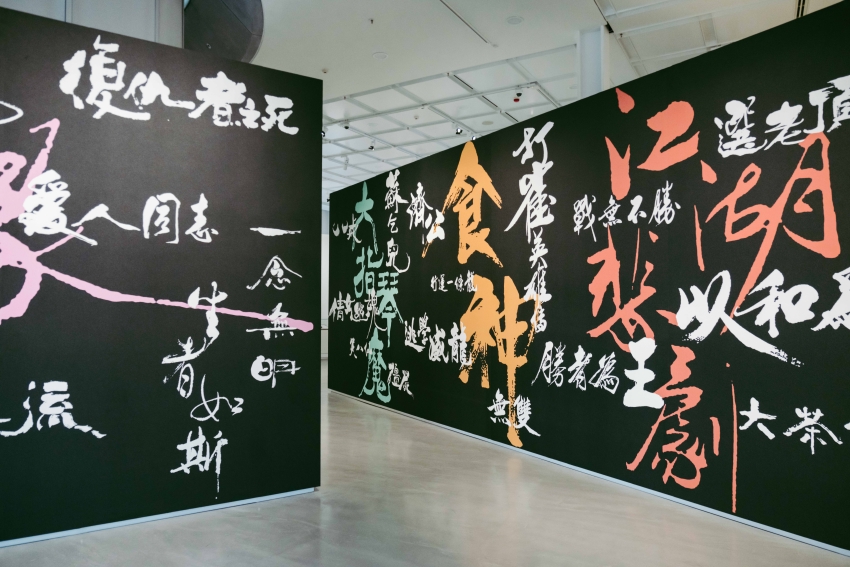 復仇者之死
愛人同志
一念無明
生者如斯
流
大指
琴魔
蘇乞兒
濟公
食神
打雀英雄
逃學威龍
無雙
勝者為王
戰無不勝
江湖悲劇
選老頂
以和為
大茶